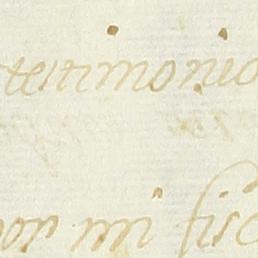 testimonio
por mi fisc